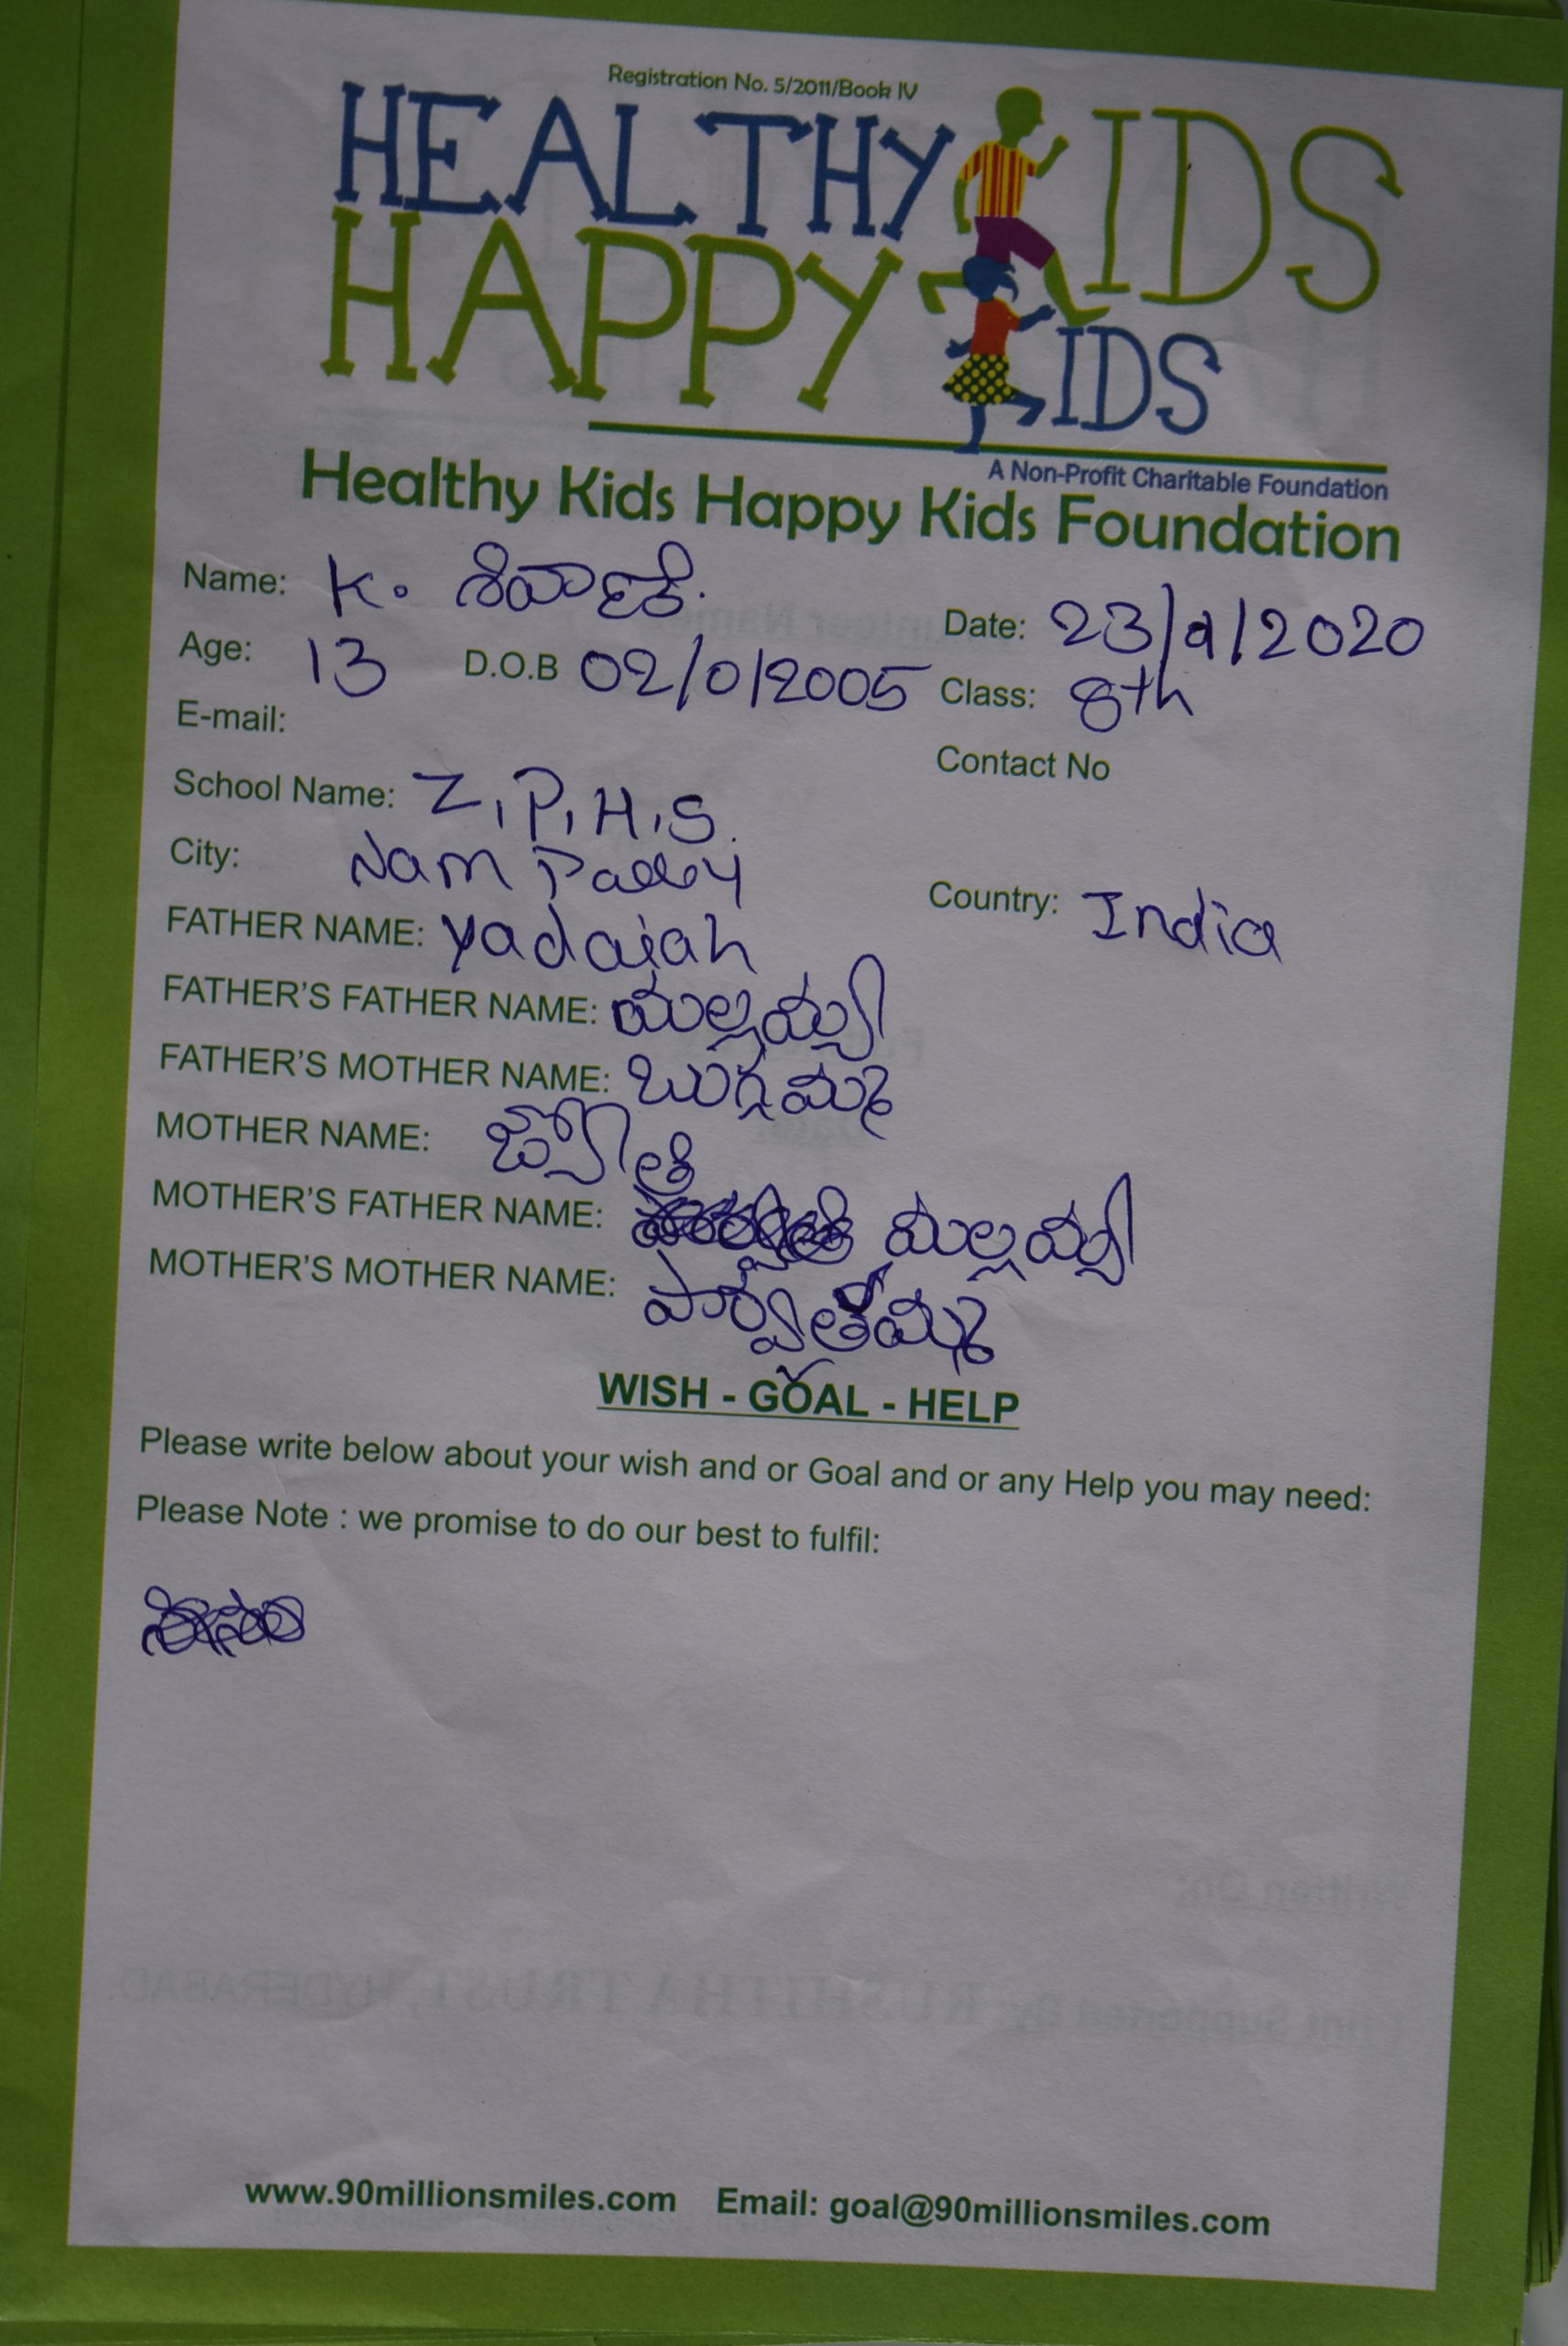 Registration No. 5/2011/Book IV
HEALTHY KIDS
HAPPY KIDS
A Non-Profit Charitable Foundation
Healthy Kids Happy Kids Foundation
Name: K. శివాణి. Date: 23/9/2020
Age: 13 D.O.B 02/0/2005 Class: 8th
E-mail: Contact No
School Name: Z.P.H.S.
City: Nampally Country: India
FATHER NAME: Yadaiah
FATHER'S FATHER NAME: మల్లయ్య
FATHER'S MOTHER NAME: బుగ్గమ్మ
MOTHER NAME: జ్యోతి
MOTHER'S FATHER NAME: మల్లయ్య
MOTHER'S MOTHER NAME: పార్వతమ్మ
WISH - GOAL - HELP
Please write below about your wish and or Goal and or any Help you may need:
Please Note : we promise to do our best to fulfil:
www.90millionsmiles.com Email: goal@90millionsmiles.com